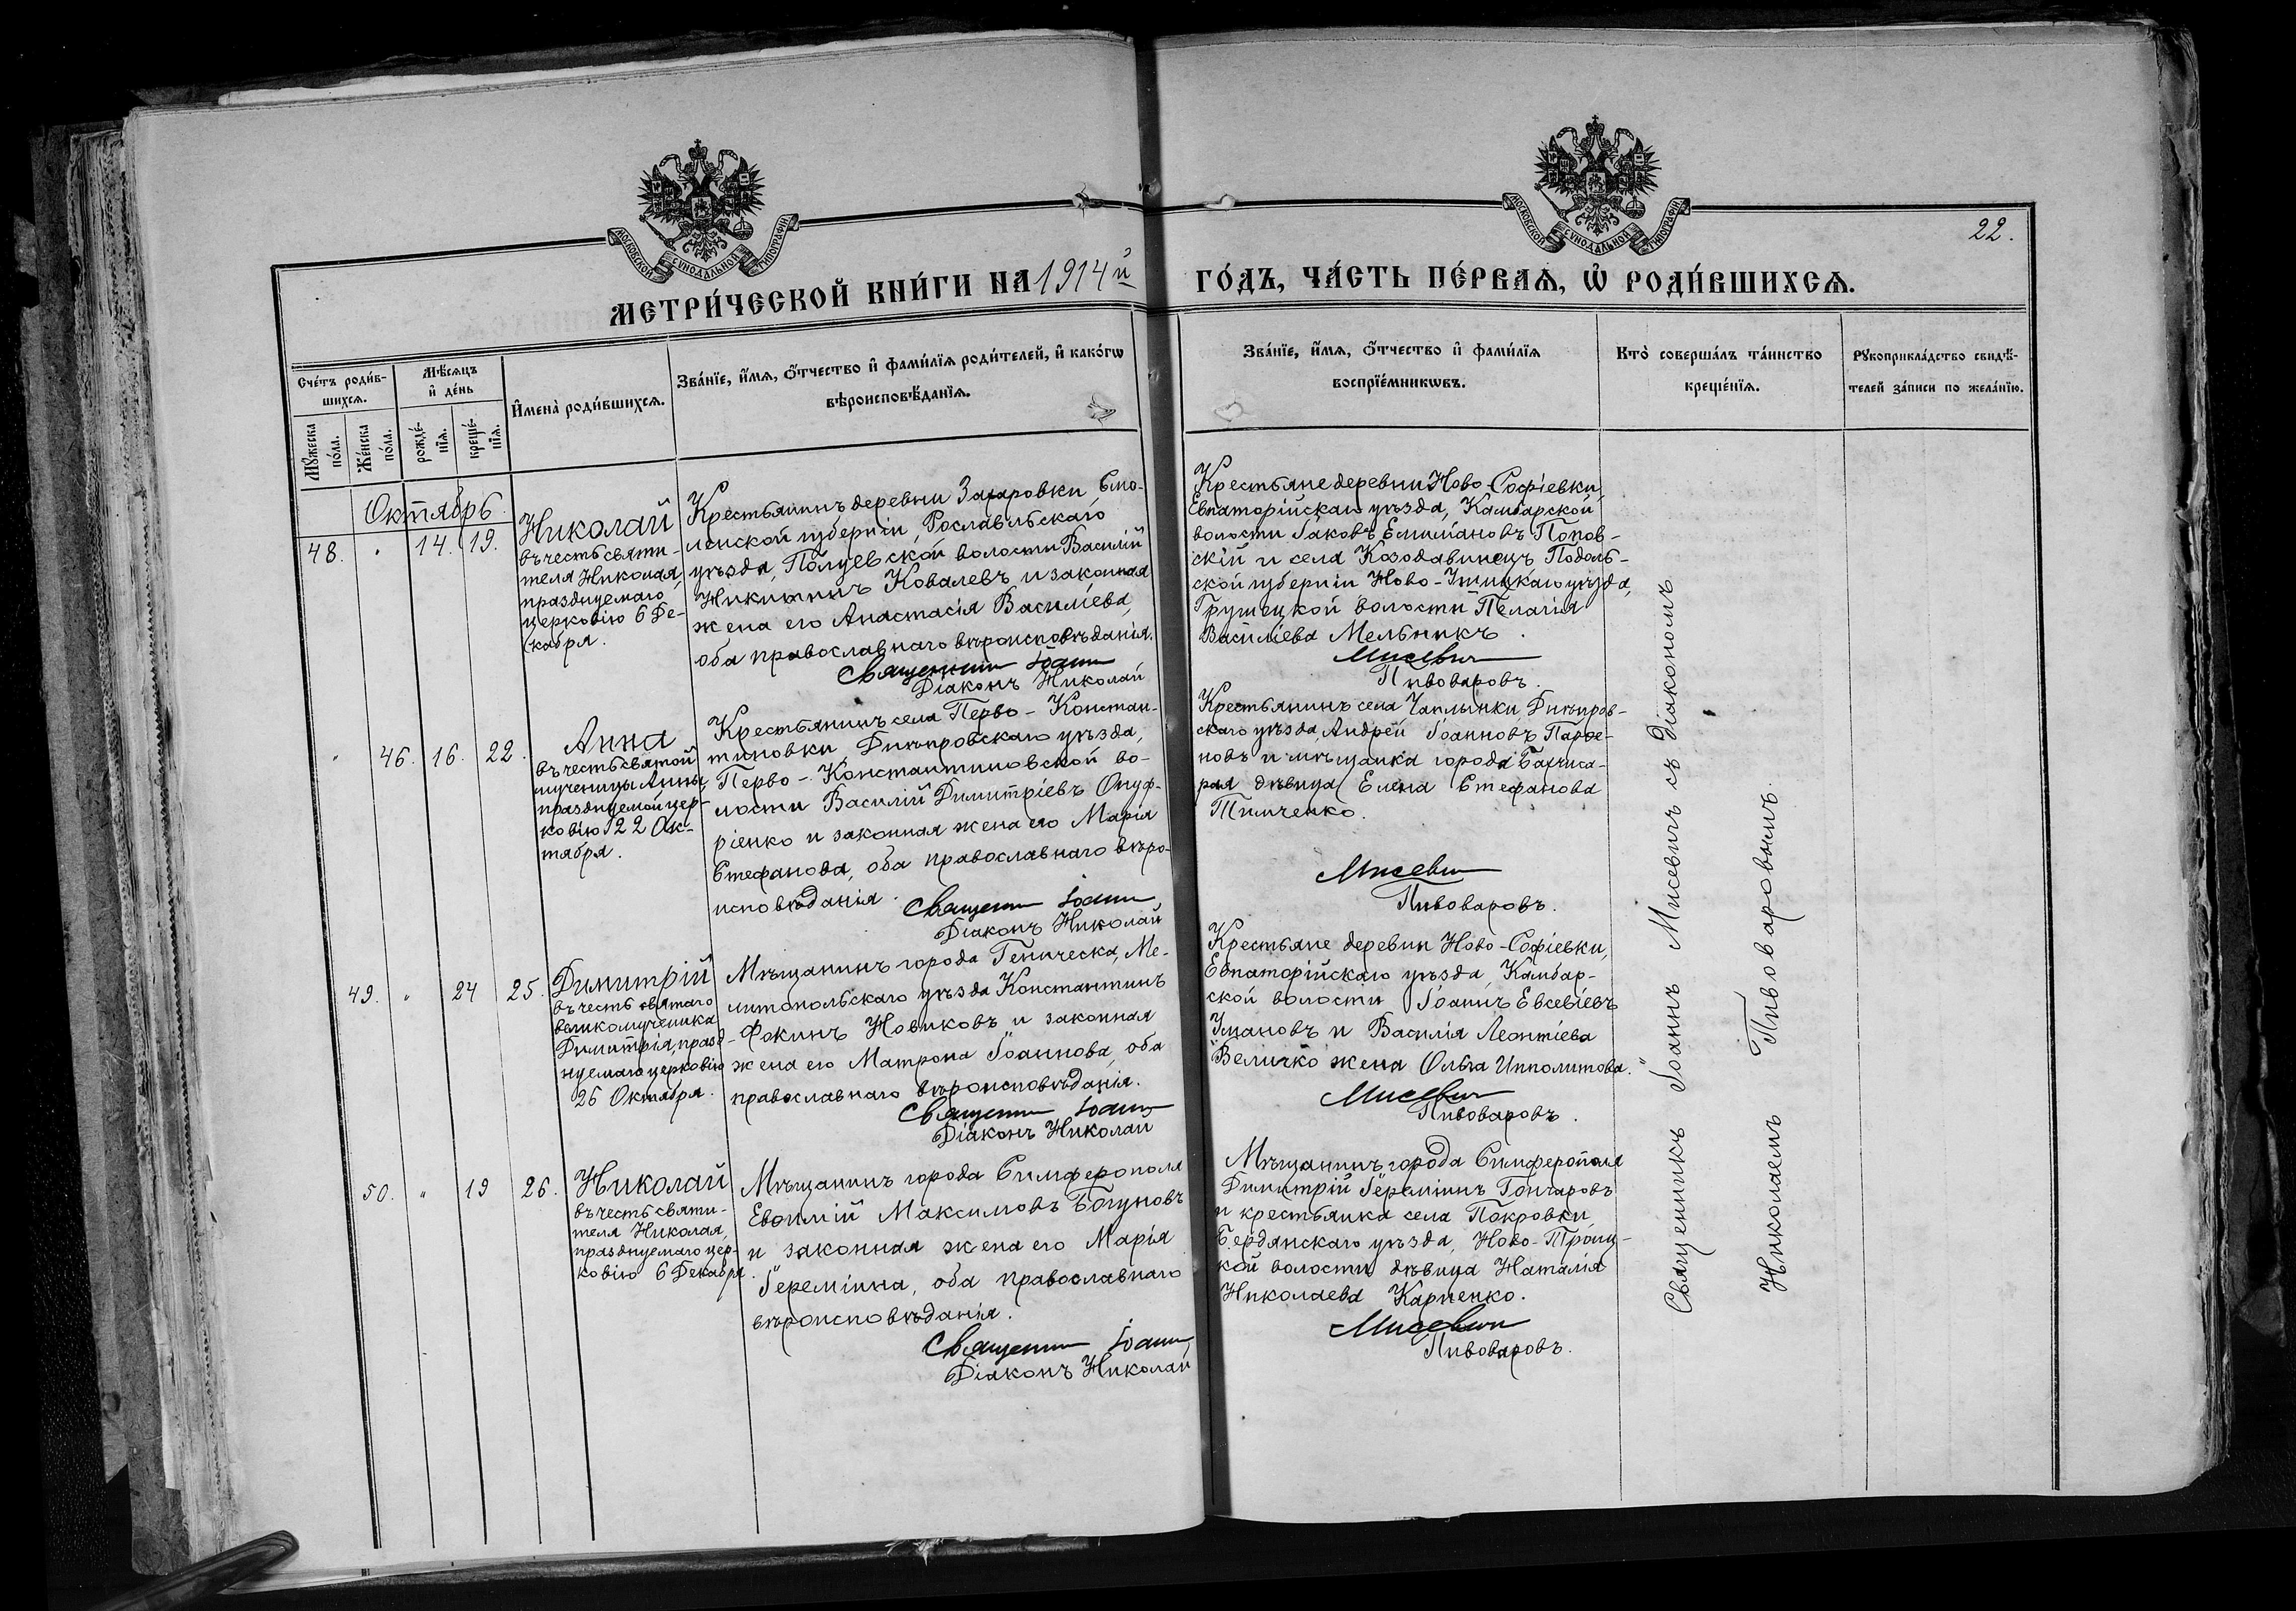 МОСКОВСКОЙ СУНОДАЛЬНОЙ ТИПОГРАФІИ
МОСКОВСКОЙ СУНОДАЛЬНОЙ ТИПОГРАФІИ
22.
МЕТРИ́ЧЕСКОЙ КНИ́ГИ НА 1914й ГО́ДЪ, ЧА́СТЬ ПЕ́РВАѦ, Ѡ҆ РОДИ́ВШИХСѦ.
Сче́тъ роди́в-
шихсѧ.
Мꙋ́жеска
по́ла.
Же́нска
по́ла.
Мѣ́сѧцъ
и҆ де́нь
рожде́-
нїѧ.
креще́-
нїѧ.
И҆мена̀ роди́вшихсѧ.
Зва́нїе, и҆́мѧ, ѻ҆́тчество и҆ фами́лїѧ роди́телей, и҆ како́гѡ
вѣроисповѣ́данїѧ.
Зва́нїе, и҆́мѧ, ѻ҆́тчество и҆ фами́лїѧ
воспрїе́мникѡвъ.
Кто̀ соверша́лъ та́инство
креще́нїѧ.
Рꙋкоприкла́дство свидѣ́-
телей за́писи по жела́нїю.
Октябрь.
48. " 14. 19.
Николай
въ честь святи-
теля Николая,
празднуемаго
церковію 6 Де-
кабря.
Крестьянинъ деревни Захаровки, Смо-
ленской губерніи, Рославльскаго
уѣзда, Полуевской волости Василій
Никитинъ Ковалевъ и законная
жена его Анастасія Василіева,
оба православнаго вѣроисповѣданія.
Священникъ Іоаннъ
Діаконъ Николай
Крестьяне деревни Ново-Софіевки,
Евпаторійскаго уѣзда, Камбарской
волости Іаковъ Емиліановъ Попов-
скій и села Козодавинецъ Подоль-
ской губерніи Ново-Ушицкаго уѣзда,
Грушецкой волости Пелагія
Василіева Мельникъ.
Мисевичъ
Пивоваровъ.
" 46. 16. 22.
Анна
въ честь святой
мученицы Анны,
празднуемой цер-
ковію 22 Ок-
тября.
Крестьянинъ села Перво-Констан-
тиновки, Днѣпровскаго уѣзда,
Перво-Константиновской во-
лости Василій Димитріевъ Онуф-
ріенко и законная жена его Марія
Стефанова, оба православнаго вѣро-
исповѣданія.
Священникъ Іоаннъ
Діаконъ Николай
Крестьянинъ села Чаплынки, Днѣпров-
скаго уѣзда, Андрей Іоанновъ Парѳе-
новъ и мѣщанка города Бахчиса-
рая дѣвица Елена Стефанова
Тимченко.
Мисевичъ
Пивоваровъ.
49. " 24 25.
Димитрій
въ честь святаго
великомученика
Димитрія, празд-
нуемаго церковію
26 Октября.
Мѣщанинъ города Геническа, Ме-
литопольскаго уѣзда Константинъ
Фокинъ Новиковъ и законная
жена его Матрона Іоаннова, оба
православнаго вѣроисповѣданія.
Священникъ Іоаннъ
Діаконъ Николай
Крестьяне деревни Ново-Софіевки,
Евпаторійскаго уѣзда, Камбар-
ской волости Іоаннъ Евсевіевъ
Умановъ и Василія Леонтіева
Величко жена Ольга Ипполитова.
Мисевичъ
Пивоваровъ.
50. " 19 26.
Николай
въ честь святи-
теля Николая,
празднуемаго цер-
ковію 6 Декабря.
Мѣщанинъ города Симферополя
Евѳимій Максимовъ Богуновъ
и законная жена его Марія
Іереміина, оба православнаго
вѣроисповѣданія.
Священникъ Іоаннъ
Діаконъ Николай
Мѣщанинъ города Симферополя
Димитрій Іереміинъ Гончаровъ
и крестьянка села Покровки,
Бердянскаго уѣзда, Ново-Троиц-
кой волости дѣвица Наталія
Николаева Карпенко.
Мисевичъ
Пивоваровъ.
Священникъ Іоаннъ Мисевичъ съ діакономъ
Николаемъ Пивоваровымъ.